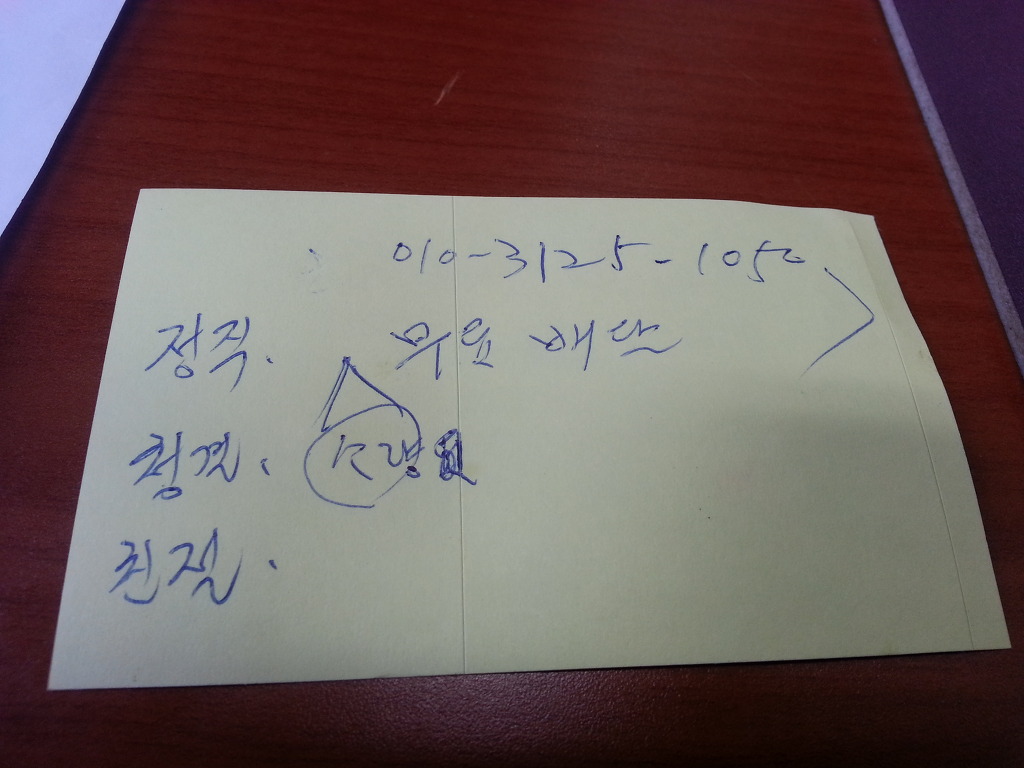 010-3125-1050
정직. 무료 배달
청결.
친절.